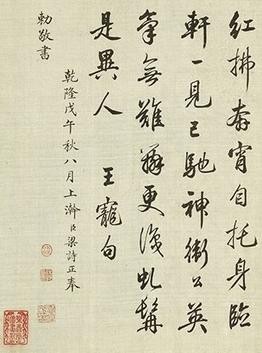 紅拂奔宵自托身臨
軒一見已馳神衛公英
氣無難辨更識虬髯
是異人 王寵句
乾隆戊午秋八月上澣臣梁詩正奉
勅敬書